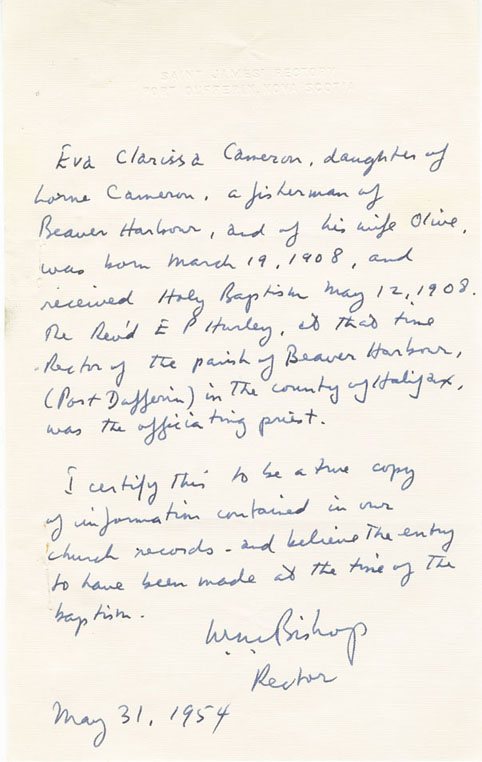 SAINT JAMES' RECTORY
PORT DUFFERIN, NOVA SCOTIA
Eva Clarissa Cameron, daughter of
Lorne Cameron, a fisherman of
Beaver Harbour, and of his wife Olive,
was born March 19, 1908, and
received Holy Baptism May 12, 1908.
The Rev'd E P Hurley, at that time
Rector of the parish of Beaver Harbour,
(Port Dufferin) in the county of Halifax,
was the officiating priest.
I certify this to be a true copy
of information contained in our
church records - and believe the entry
to have been made at the time of the
baptism.
Wm Bishop
Rector
May 31, 1954